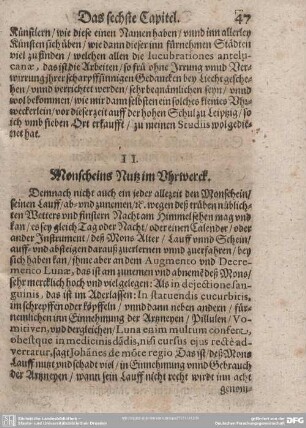 Das sechste Capitel. 47
Künstlern / wie diese einen Namen haben / vnnd inn allerley
Künsten sich üben / wie dann dieser inn fürnehmen Städten
viel zu finden / welchen allen die lucubrationes antelu-
canæ, das ist die Arbeiten / so früh ohne Irrung vnnd Ver-
wirrung ihrer scharpffsinnigen Gedancken bey Liecht geschehen
/ vnnd verrichtet werden / sehr bequämlichen seyn / vnnd
wol bekommen / wie mir dann selbsten ein solches kleines Vhr-
weckerlein / vor dieser zeit auff der hohen Schul zu Leipzig / so
ich vmb sieben Ort erkaufft / zu meinen Studiis wol gedie-
net hat.
II.
Monscheins Nutz im Vhrwerck.
Demnach nicht auch ein jeder allezeit den Monschein /
seinen Lauff / ab- vnd zunemen / &c. wegen deß trüben nüblich-
ten Wetters vnd finstern Nacht am Himmel sehen mag vnd
kan / es sey gleich Tag oder Nacht / oder einen Calender / oder
ander Instrument / deß Mons Alter / Lauff vnnd Schein /
auff- vnd absteigen darauß zuerlernen vnnd zuerfahren / bey
sich haben kan / ihme aber an dem Augmento vnd Decre-
mento Lunæ, das ist am zunemen vnd abnemē deß Mons /
sehr mercklich hoch vnd viel gelegen: Als in dejectione san-
guinis, das ist im Aderlassen: In statuendis cucurbitis,
im schrepffen oder köpffeln / vnnd dann neben andern / für-
nemlichen inn Einnehmung der Artzneyen / Pillulen / Vo-
mitiven, vnd dergleichen / Luna enim multum confert,
obestque in medicinis dādis, nisi cursus ejus rectè ad-
vertatur, sagt Johānes de môte regio. Das ist / deß Mons
Lauff nutzt vnd schadet viel / in Einnehmung vnnd Gebrauch
der Artzneyen / wann sein Lauff nicht recht wirdt inn acht
genom-